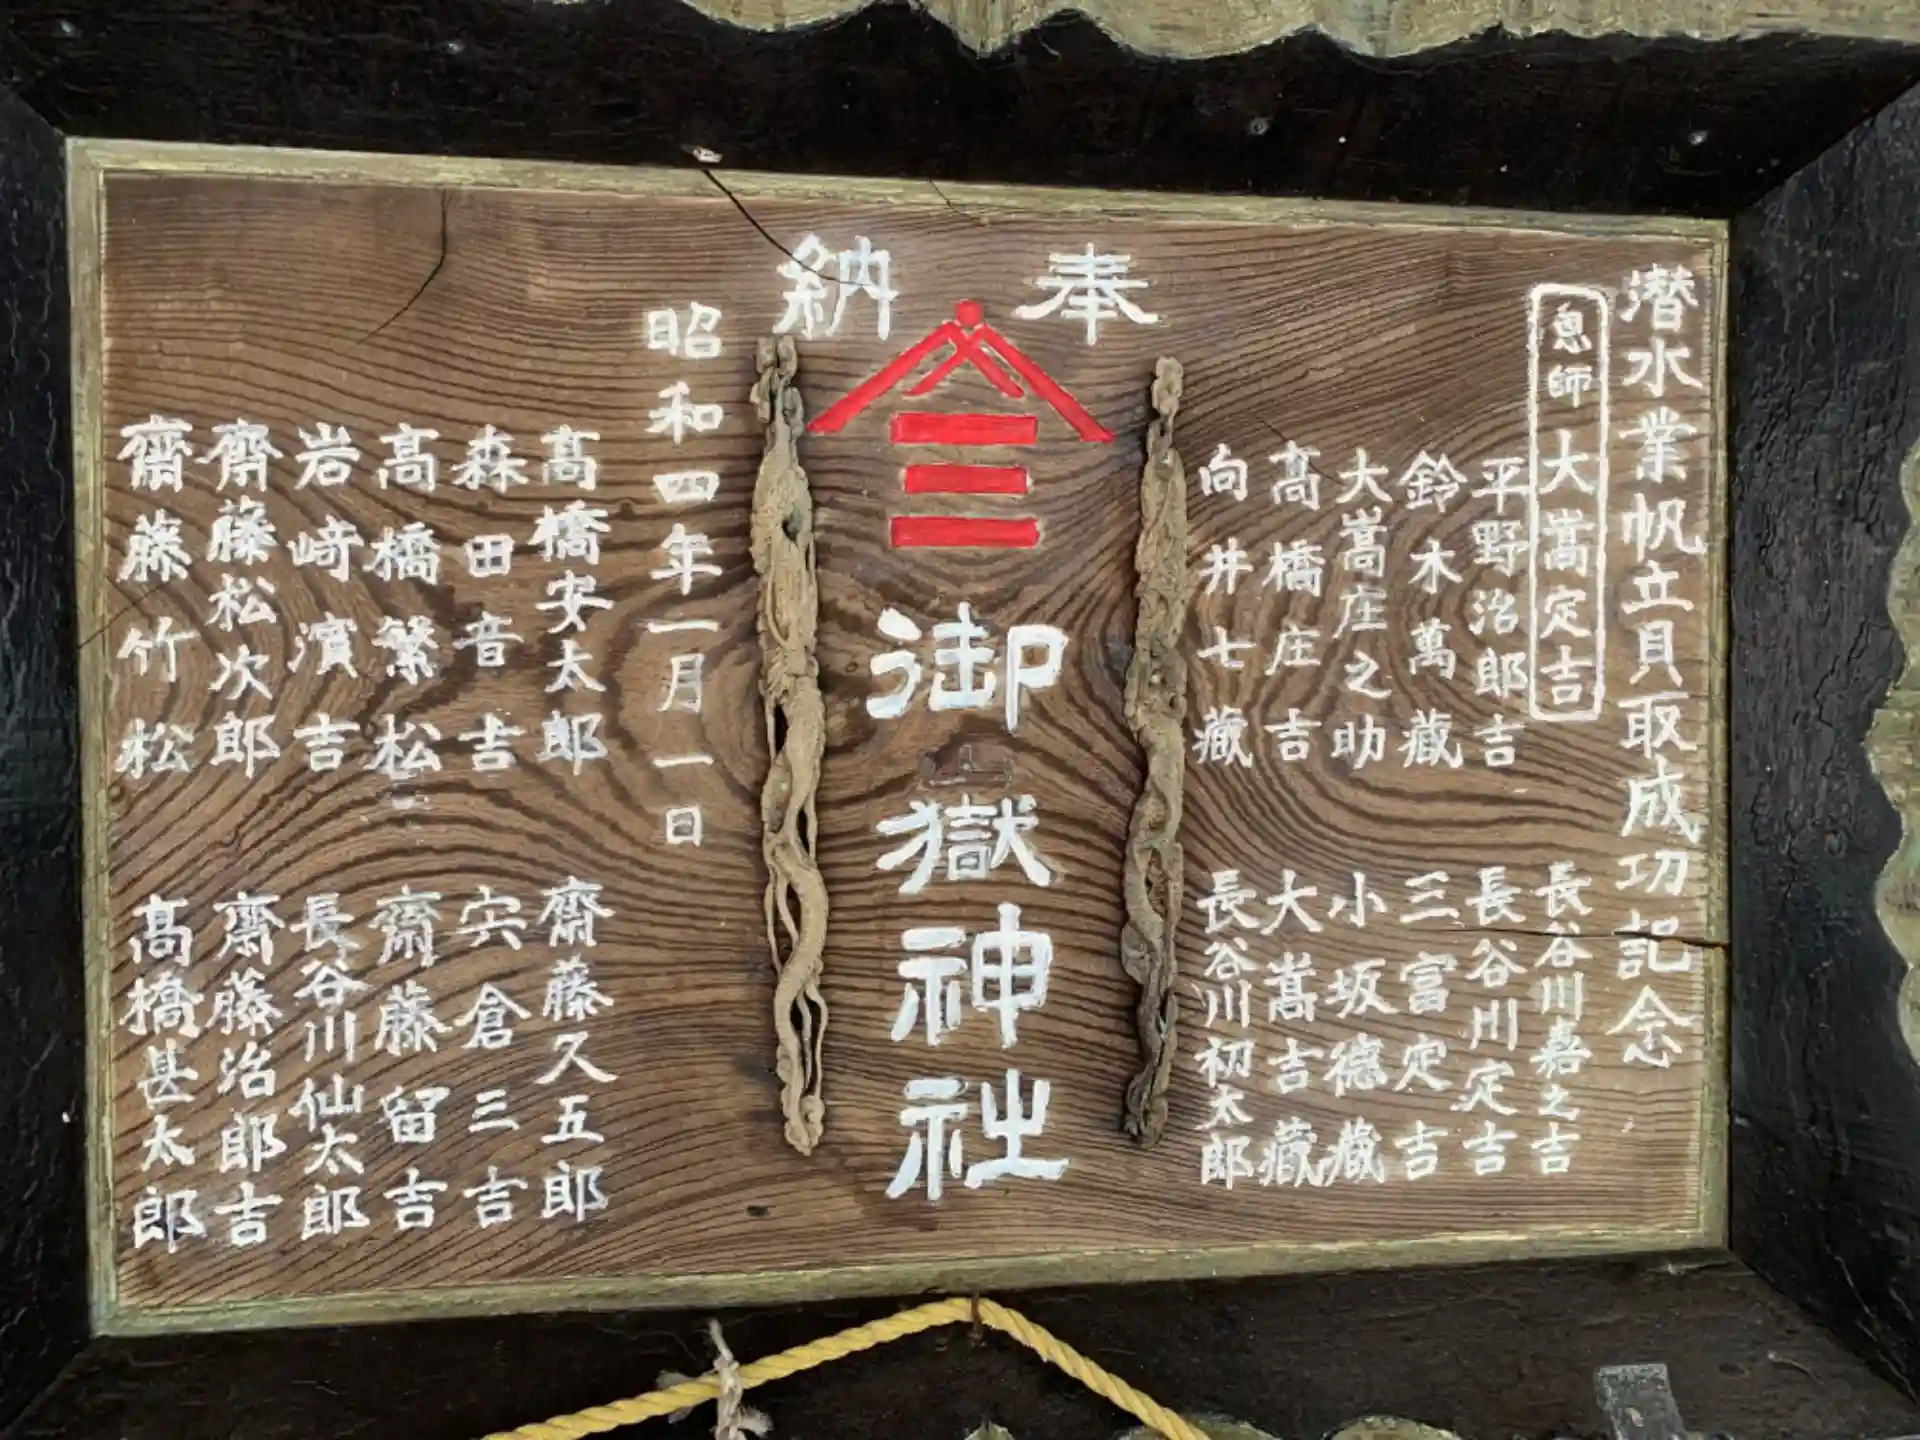 奉納
潜水業帆立貝取成功記念
恩師 大嵩定吉
平野治郎吉
鈴木萬蔵
大嵩庄之助
髙橋庄吉
向井七蔵
長谷川嘉之吉
長谷川定吉
三富定吉
小坂徳蔵
大嵩吉蔵
長谷川初太郎
御嶽神社
昭和四年一月一日
髙橋安太郎
森田音吉
髙橋繁松
岩﨑濱吉
齊藤松次郎
齋藤竹松
齋藤久五郎
宍倉三吉
齋藤留吉
長谷川仙太郎
齋藤治郎吉
髙橋甚太郎